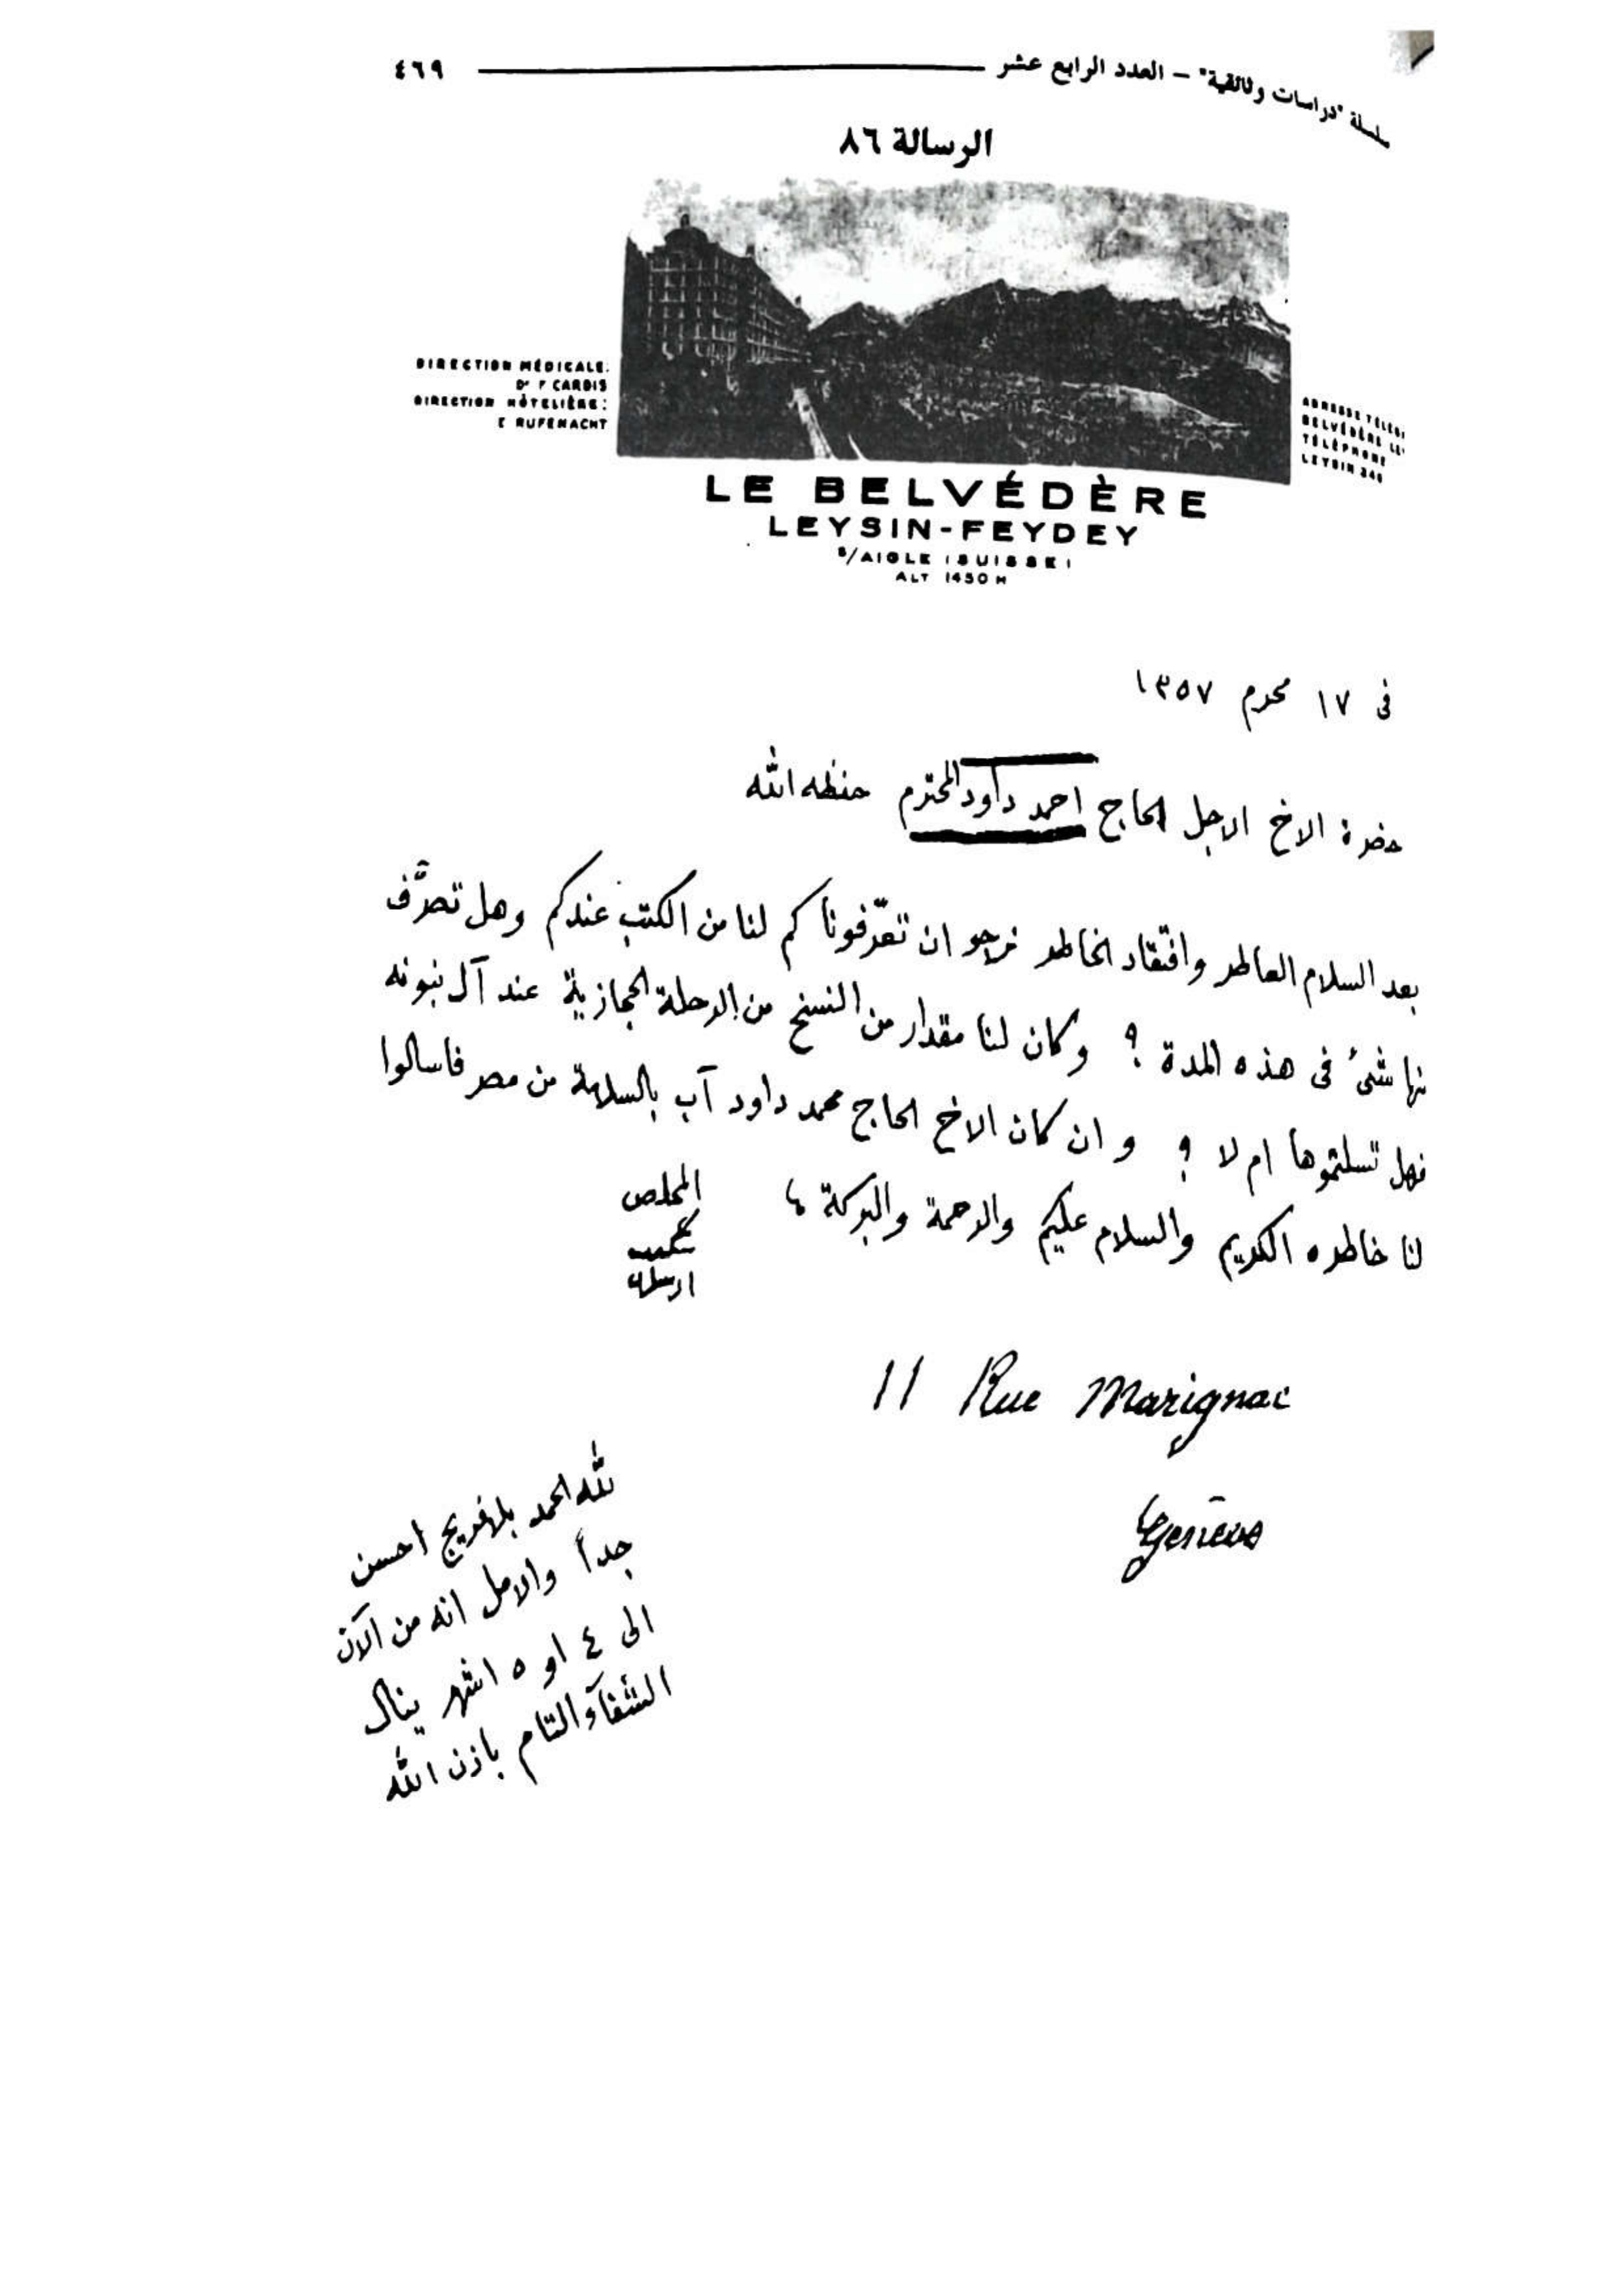 سلسلة "دراسات وثائقية" – العدد الرابع عشر ٤٦٩
الرسالة ٨٦
DIRECTION MÉDICALE:
Dr F CARDIS
DIRECTION HÔTELIÈRE:
E RUFENACHT
ADRESSE TÉLÉG
BELVÉDÈRE LE
TÉLÉPHONE
LEYSIN 340
LE BELVÉDÈRE
LEYSIN-FEYDEY
S/AIGLE (SUISSE)
ALT 1450 M
فى ١٧ محرم ١٣٥٧
حضرة الاخ الاجل الحاج احمد داود المحترم حفظه الله
بعد السلام العاطر وافتقاد الخاطر نرجو ان تعرّفونا كم لنا من الكتب عندكم وهل تصرَّف
منها شئ فى هذه المدة ؟ وكان لنا مقدار من النسخ من الرحلة الحجازية عند آل بنونه
فهل تسلمتموها ام لا ؟ و ان كان الاخ الحاج محمد داود آب بالسلامة من مصر فاسالوا
لنا خاطره الكريم والسلام عليكم والرحمة والبركة ،
المخلص
شكيب
ارسلان
11 Rue Marignac
Genève
لله الحمد بلافريج احسن
جداً والامل انه من الآن
الى ٤ او ٥ اشهر ينال
الشفآء التام باذن الله